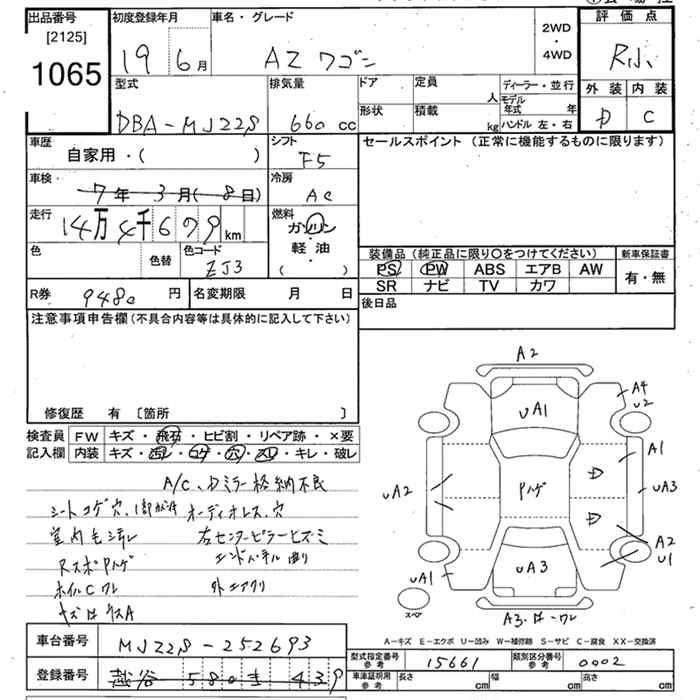 出品番号 初度登録年月 車名・グレード 2WD・4WD 評価点
[2125]
1065 19 6月 AZワゴン R小
型式 排気量 ドア 定員 人 ディーラー・並行 外装 内装
モデル年式 年
DBA-MJ22S 660cc 形状 積載 kg ハンドル 左・右 D C
車歴 自家用・( ) シフト F5 セールスポイント (正常に機能するものに限ります)
車検・ 7年3月(8日) 冷房 AC
走行 14万4千679km 燃料 ガソリン・軽油 ( )
色 色替 色コード ZJ3 装備品 (純正品に限り〇をつけてください) 新車保証書
PS PW ABS エアB AW 有・無
SR ナビ TV カワ
R券 9480円 名変期限 月 日 後日品
注意事項申告欄 (不具合内容等は具体的に記入して下さい)
修復歴 有 〔箇所 〕
検査員 FW キズ・飛石・ヒビ割・リペア跡・×要
記入欄 内装 キズ・汚レ・コゲ・穴・スレ・キレ・破レ
A/C、Dミラー格納不良
シートコゲ穴、 オーディオレス、穴
室内 左センターピラーヒズミ
RスポPハゲ エンドパネル曲り
ホイルC ワレ 外エアクリ
A
A2
UA1
A4
U2
A1
UA2
Pハゲ
D
UA3
D
A2
U1
UA1
UA3
スペ
A3・ワレ
A-キズ E-エクボ U-凹み W-補修跡 S-サビ C-腐食 XX-交換済
車台番号 MJ22S-252693
型式指定番号 参考 15661 類別区分番号 参考 0002
登録番号 越谷 580 439
車庫証明用 参考 長さ cm 幅 cm 高さ cm